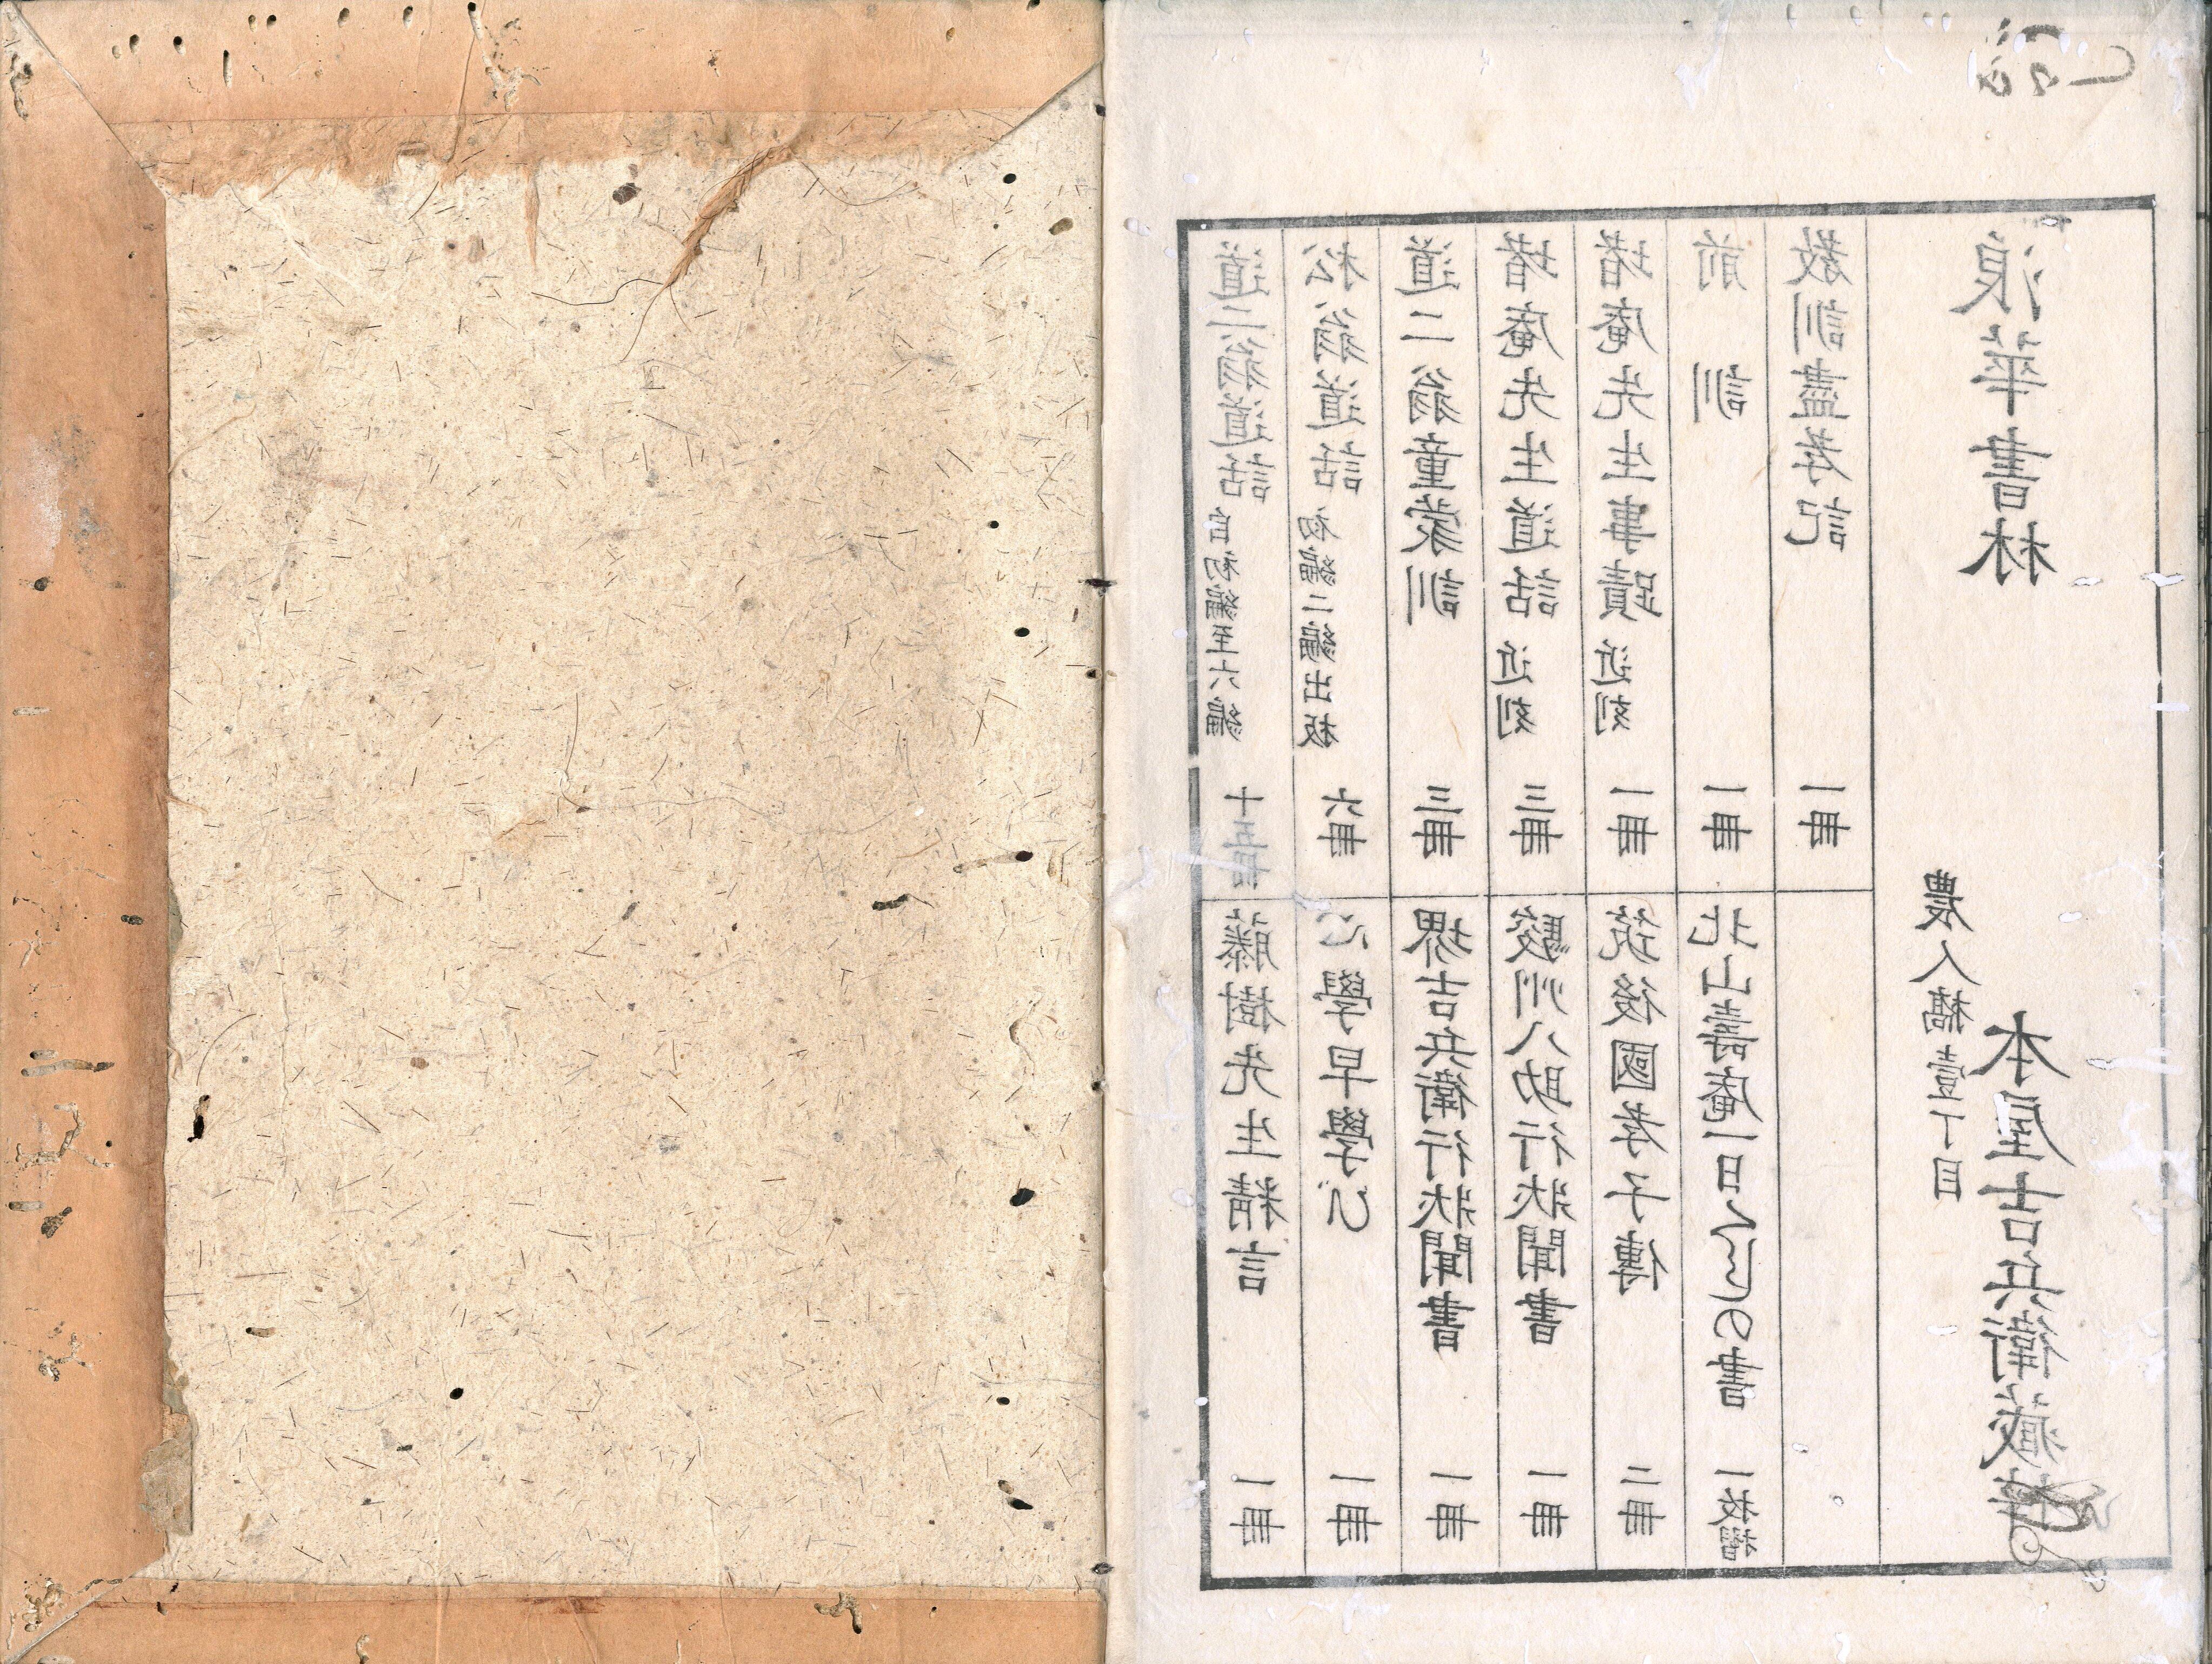 道二翁道話 自初編至六編 十五
松翁道話 初編二編出板 六冊
道二翁童蒙訓 三冊
堵庵先生道話 近刻 三冊
堵庵先生事蹟 近刻 一冊
前訓 一冊
教訓盡孝記 一冊
藤樹先生精言 一冊
心學早學び 一冊
堺吉兵衛行状聞書 一冊
駿州八助行状聞書 一冊
筑後國孝子傳 二冊
北山壽庵一日くらしの書 一枚摺
農人橋壹丁目
浪華書林 本屋吉兵衛藏梓